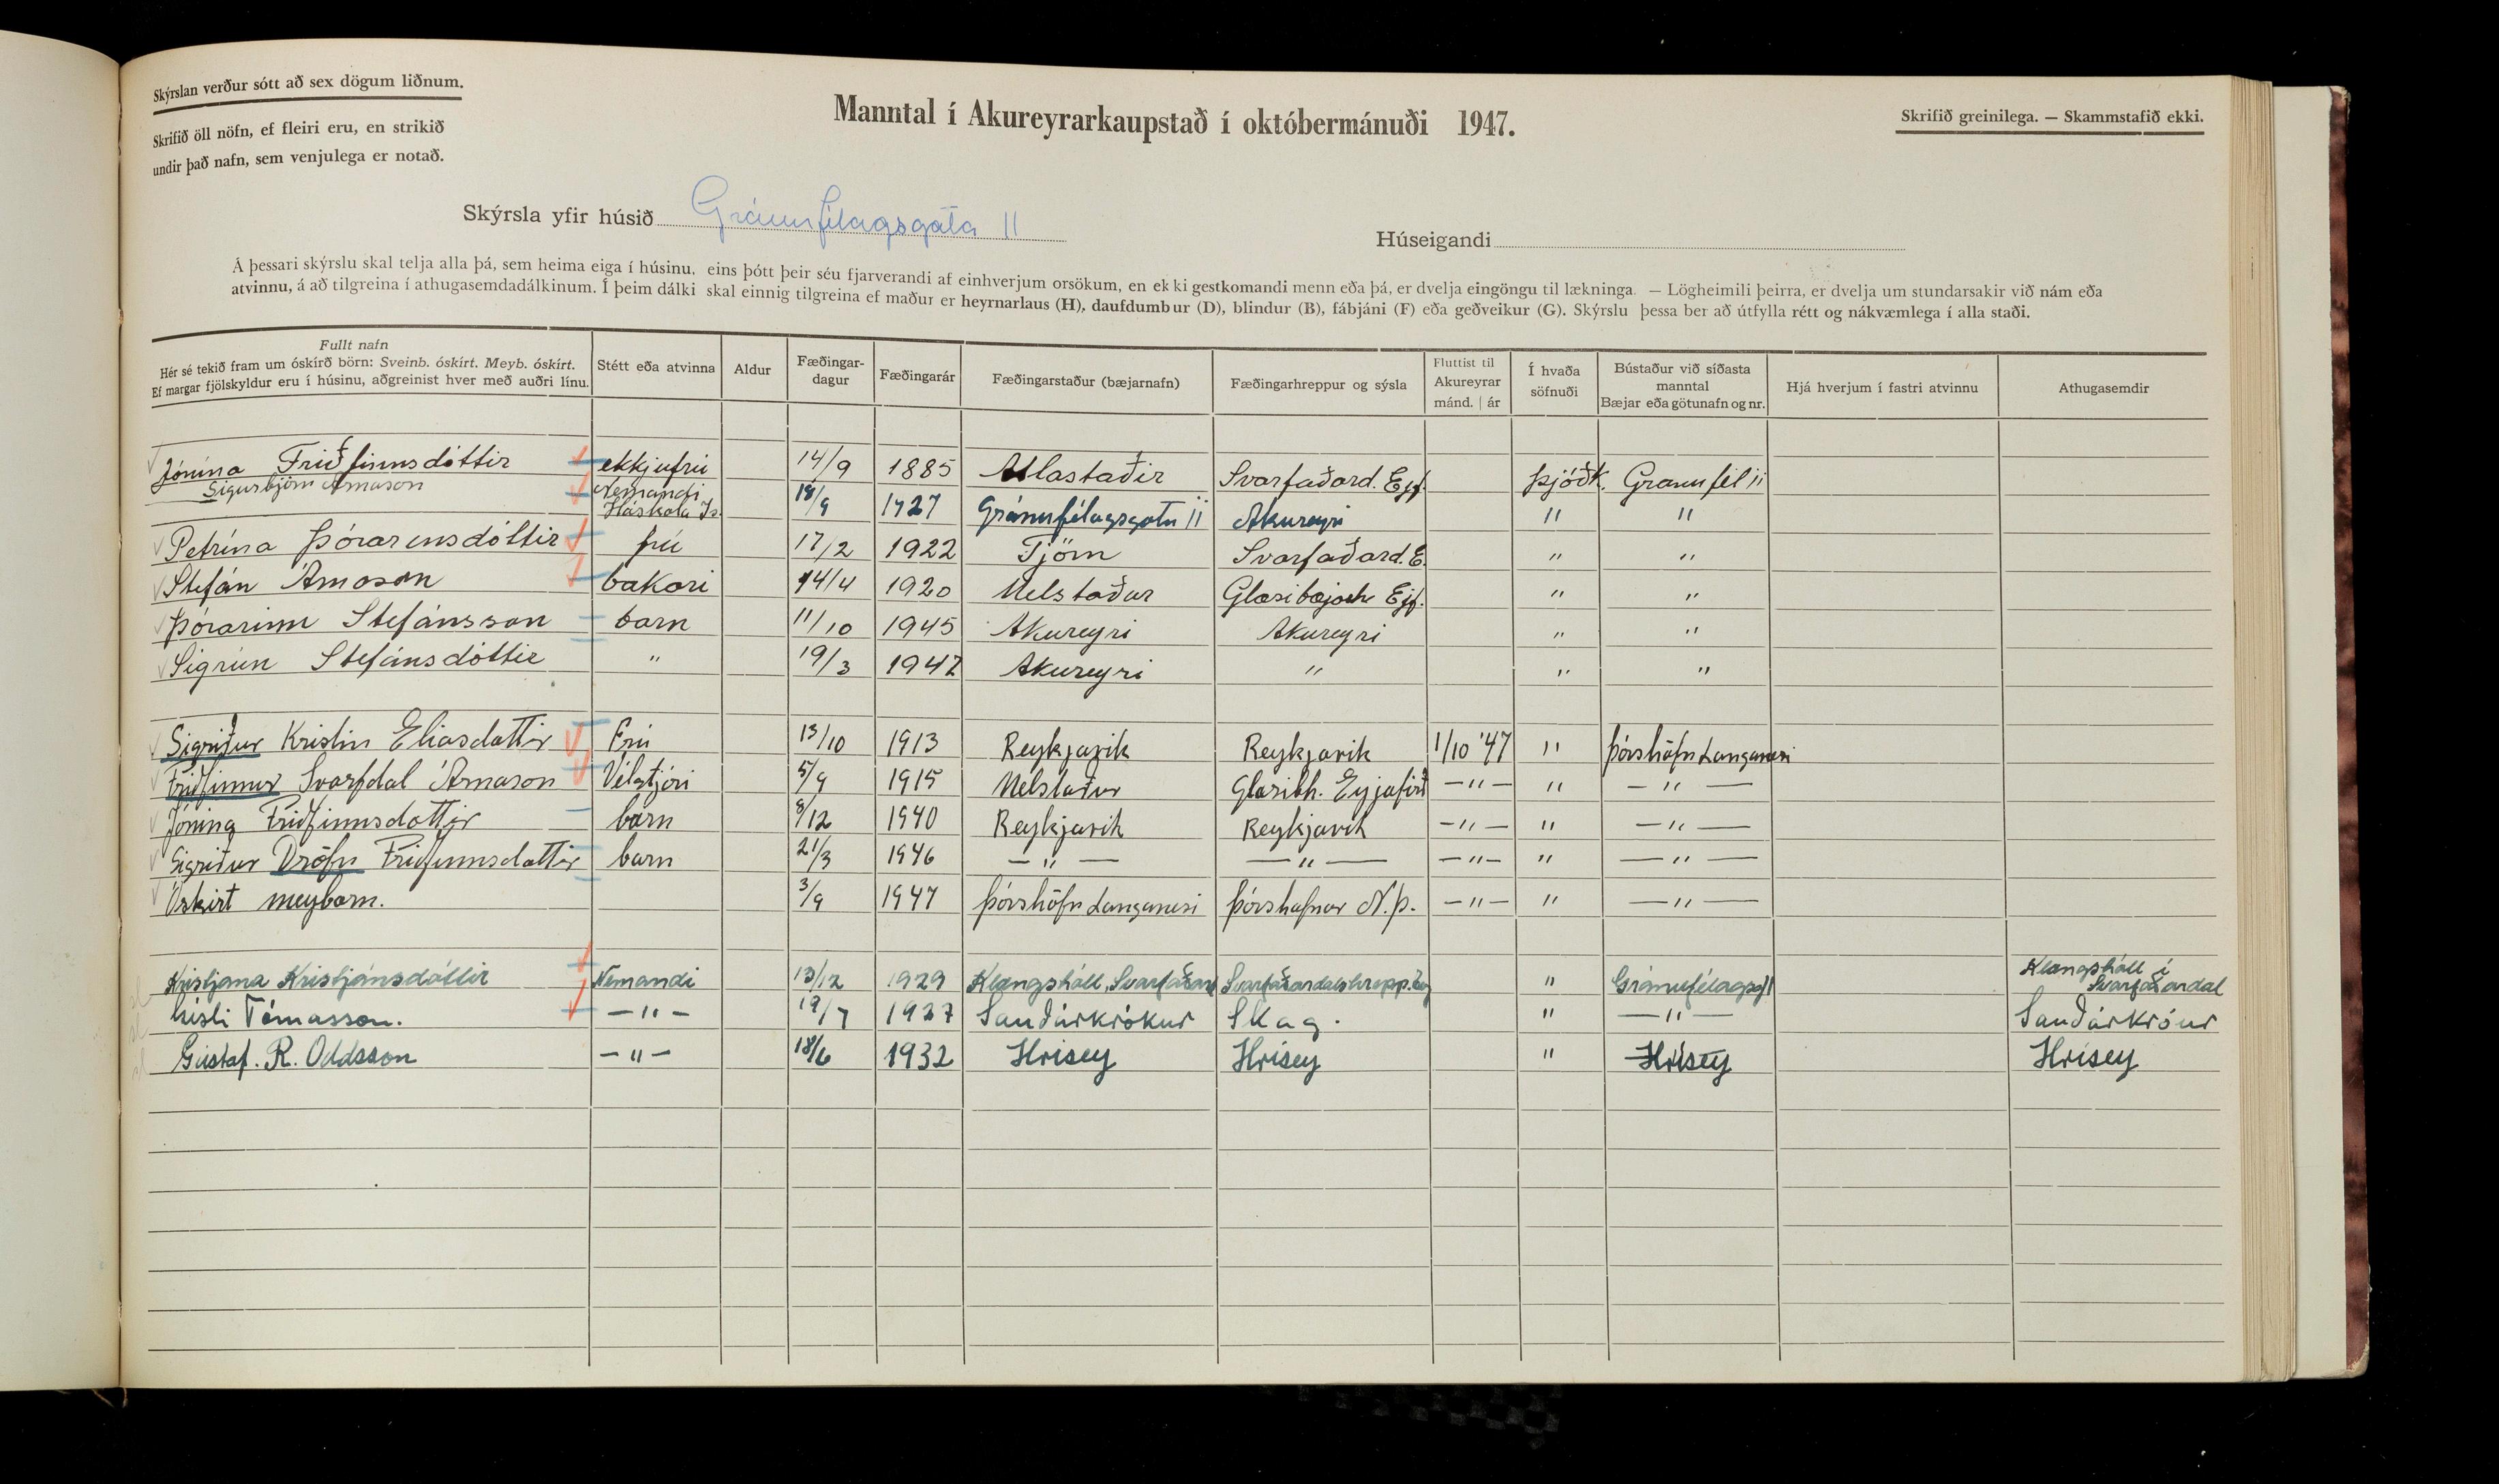 Skýrslan verður sótt að sex dögum liðnum.
Skrifið öll nöfn, ef fleiri eru, en strikið
undir það nafn, sem venjulega er notað.
Manntal í Akureyrarkaupstað í októbermánuði 1947.
Skrifið greinilega. — Skammstafið ekki.
Skýrsla yfir húsið Gránufélagsgata 11
Húseigandi
Á þessari skýrslu skal telja alla þá, sem heima eiga í húsinu, eins þótt þeir séu fjarverandi af einhverjum orsökum, en ekki gestkomandi menn eða þá, er dvelja eingöngu til lækninga. — Lögheimili þeirra, er dvelja um stundarsakir við nám eða
atvinnu, á að tilgreina í athugasemdadálkinum. Í þeim dálki skal einnig tilgreina ef maður er heyrnarlaus (H), daufdumbur (D), blindur (B), fábjáni (F) eða geðveikur (G). Skýrslu þessa ber að útfylla rétt og nákvæmlega í alla staði.
Fullt nafn
Hér sé tekið fram um óskírð börn: Sveinb. óskírt. Meyb. óskírt.
Ef margar fjölskyldur eru í húsinu, aðgreinist hver með auðri línu.
Stétt eða atvinna
Aldur
Fæðingar-
dagur
Fæðingarár
Fæðingarstaður (bæjarnafn)
Fæðingarhreppur og sýsla
Fluttist til
Akureyrar
mánd. | ár
Í hvaða
söfnuði
Bústaður við síðasta
manntal
Bæjar eða götunafn og nr.
Hjá hverjum í fastri atvinnu
Athugasemdir
Jónína Friðfinnsdóttir ekkjufrú 14/9 1885 Atlastaðir Svarfaðard. Eyf. Þjóðk. Granufél 11
Sigurbjörn Arnason Nemandi Háskola Ís. 18/9 1927 Gránufélagsgötu 11 Akureyri " "
Petrína Þórarensdóttir frú 17/2 1922 Tjörn Svarfaðard. E. " "
Stefán Árnason bakari 14/4 1920 Melstaður Glæsibæjarhr Eyf. " "
Þórarinn Stefánsson barn 11/10 1945 Akureyri Akureyri " "
Sigrún Stefánsdóttir " 19/3 1947 Akureyri " " "
Sigríður Kristín Elíasdottir Frú 13/10 1913 Reykjavik Reykjavik 1/10 '47 " Þórshöfn Langanesi
Friðfinnur Svarfdal Árnason Vélstjóri 5/9 1915 Melstaður Glæsibh. Eyjafirð — " — " — " —
Jónína Friðfinnsdottir barn 8/12 1940 Reykjavik Reykjavik — " — " — " —
Sigriður Dröfn Friðfinnsdottir barn 21/3 1946 — " — — " — — " — " — " —
Óskírt meybarn. 3/9 1947 Þórshöfn Langanesi Þórshafnar N.Þ. — " — " — " —
Kristjana Kristjánsdóttir Nemandi 13/12 1929 Klængshóll, Svarfaðard Svarfaðardalshrepp. Ey " Gránufélagsg 11 Klængshóll í
Svarfaðardal
Gísli Tómasson. — " — 19/7 1927 Sauðárkrókur Skag. " — " — Sauðárkróur
Gústaf. R. Oddsson — " — 18/6 1932 Hrisey Hrísey " Hrísey Hrísey